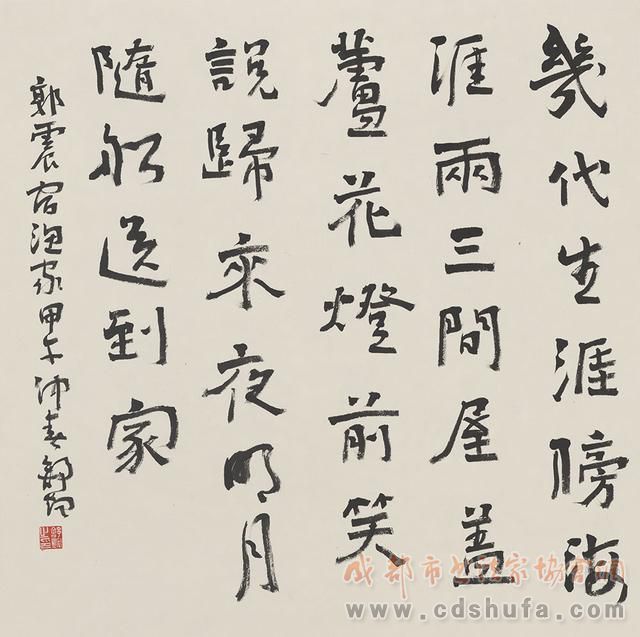 幾代生涯傍海
涯兩三間屋蓋
蘆花燈前笑
說歸來夜明月
隨船送到家
郭震宿漁家甲午仲春
成都市书法家协会网
www.cdshufa.com